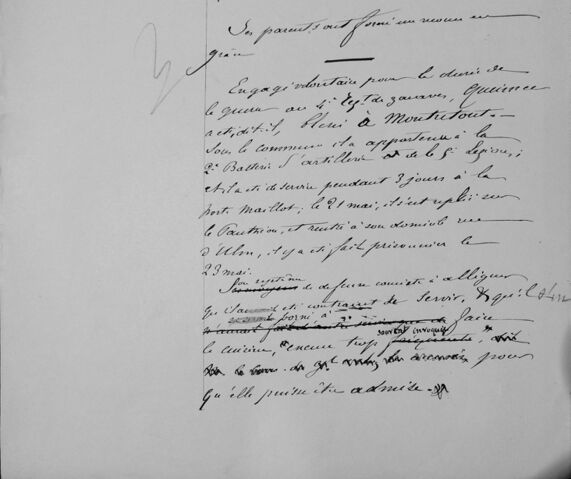 Ses parents ont formé un recours en
grâce
Engagé volontaire pour la durée de
la guerre au 4e Régt de zouaves, Quience
a, dit-il, blessé à Montretout.
Sous la commune il a appartenu à la
2e Batterie d'artillerie de la 5e Légion;
et il a été de service pendant 3 jours à la
porte Maillot; le 21 mai, il s'est replié sur
le Panthéon, et rentré à son domicile rue
d'Ulm, il y a été fait prisonnier le
23 mai.
Son système
de défense consiste à alléguer
qu'il a été contraint de servir, & qu'il s'est
borné à
faire
la cuisine, excuse trop souvent invoquée
pour
qu'elle puisse être admise.